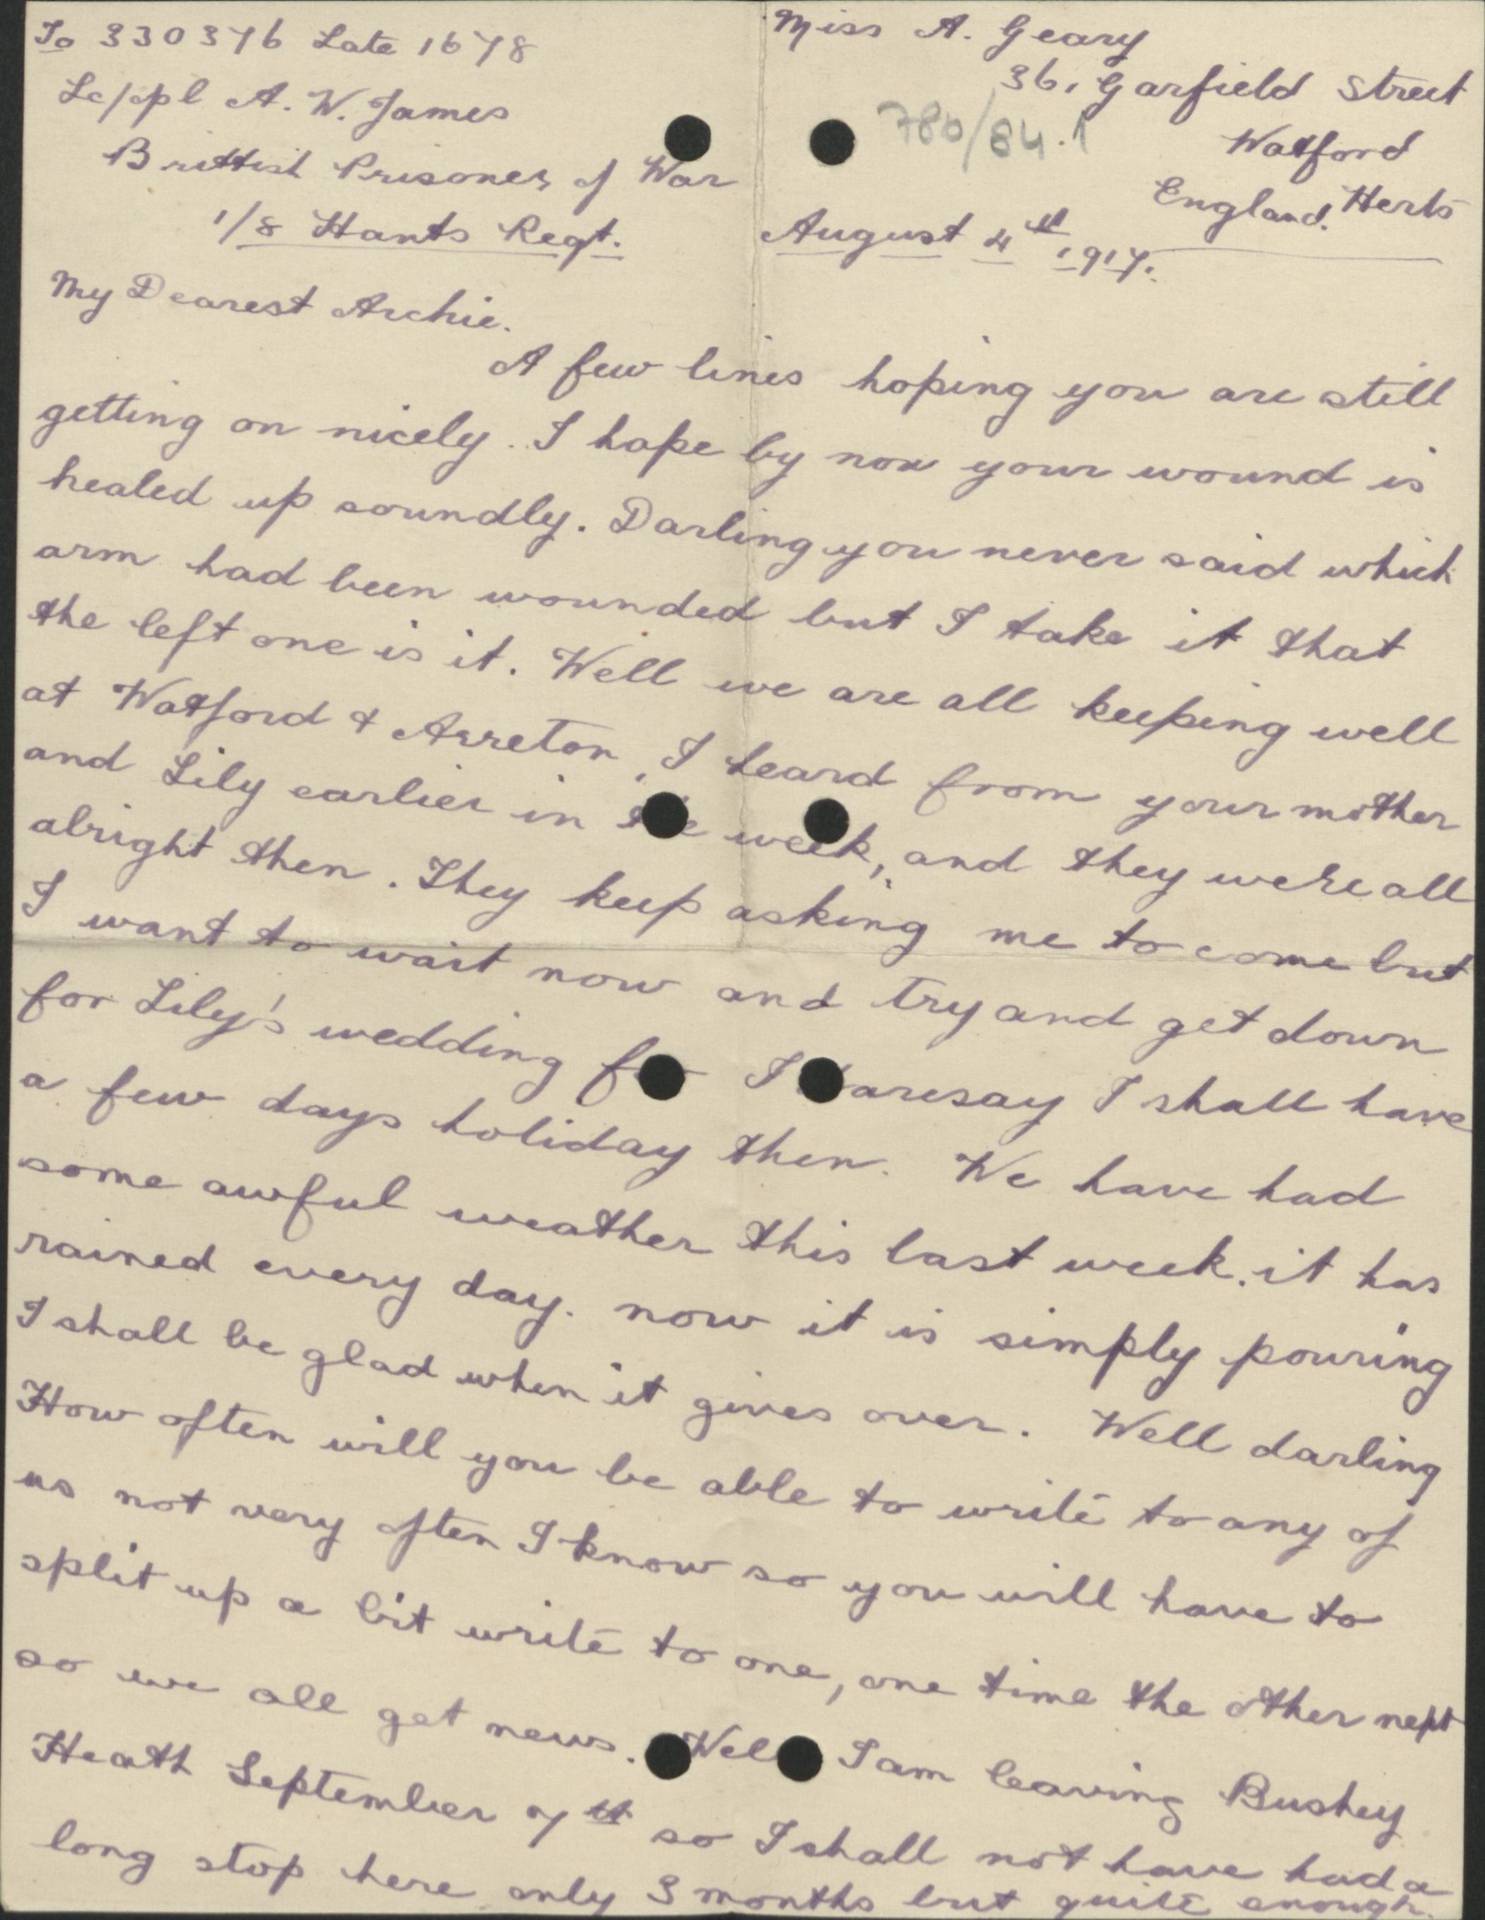 To 330376 Late 1678
Lc/ppl A. W. James
Brittish Prisoner of War
1/8 Hants Regt.
Miss A. Geary
36, Garfield Street
Watford
Herts
England.
780/84.1
August 4th 1917.
My Dearest Archie.
A few lines hoping you are still
getting on nicely. I hope by now your wound is
healed up soundly. Darling you never said which
arm had been wounded but I take it that
the left one is it. Well we are all keeping well
at Watford & Arreton, I heard from your mother
and Lily earlier in the week, and they were all
alright then. They keep asking me to come but
I want to wait now and try and get down
for Lily's wedding for I daresay I shall have
a few days holiday then. We have had
some awful weather this last week. it has
rained every day. now it is simply pouring
I shall be glad when it gives over. Well darling
How often will you be able to write to any of
us not very often I know so you will have to
split up a bit write to one, one time the other next
so we all get news. Well I am leaving Bushey
Heath September 7th so I shall not have had a
long stop here only 3 months but quite enough.